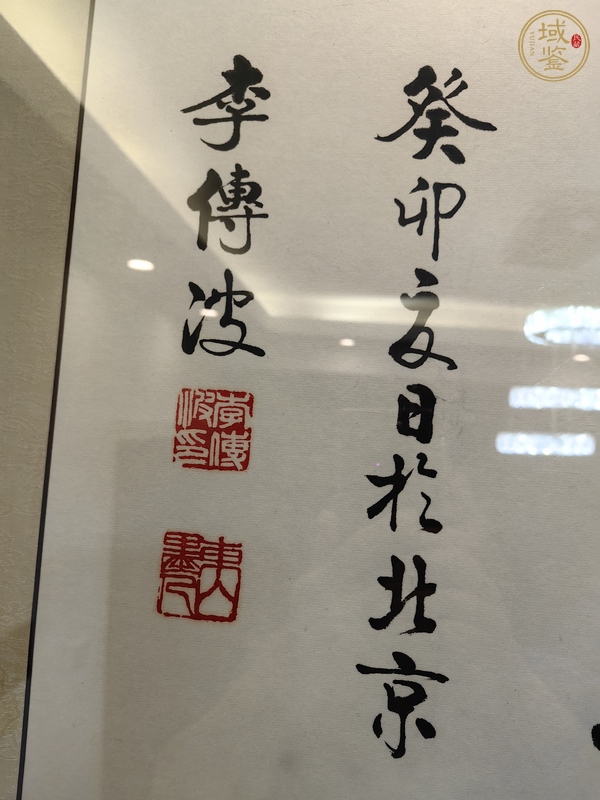 癸卯夏日於北京
李傳波
李傳波印
域鉴
YUJIAN